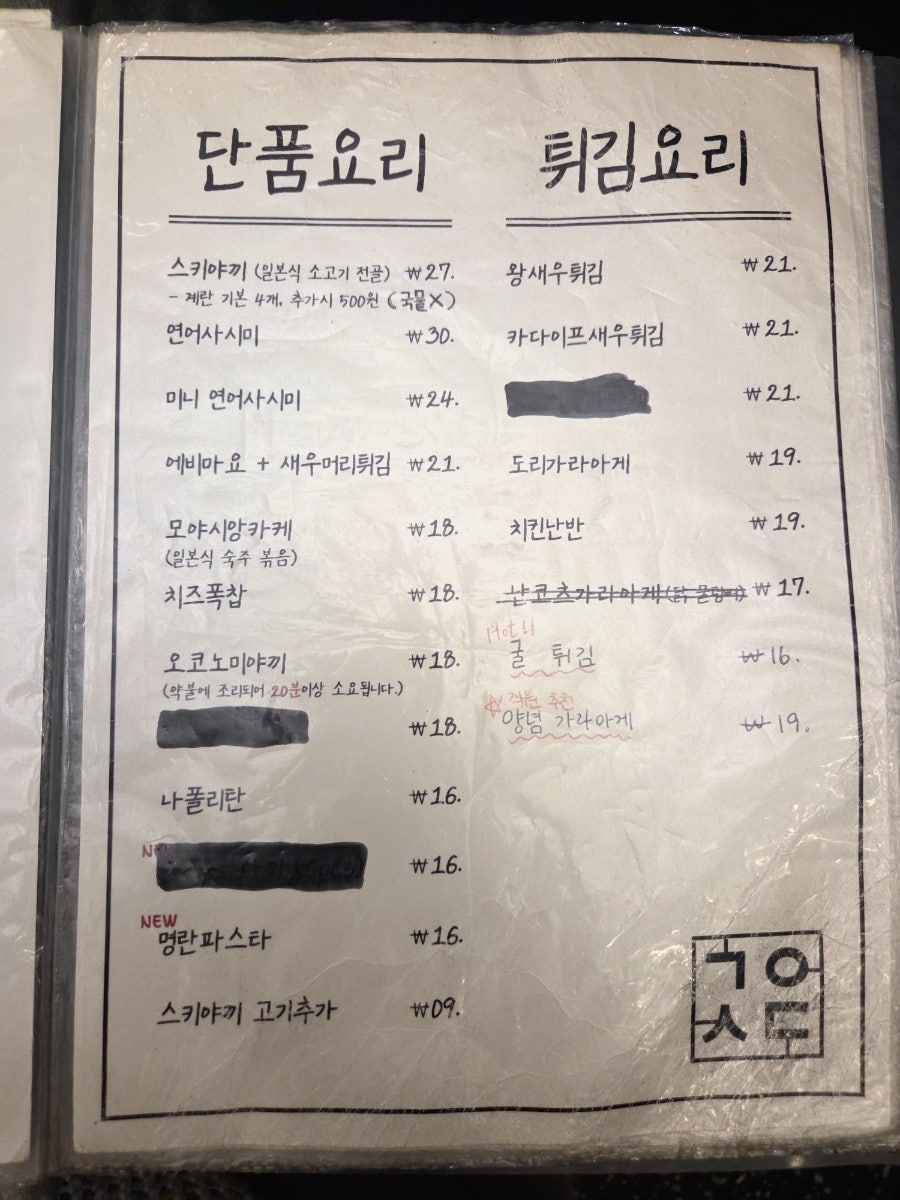 단품요리
스키야끼 (일본식 소고기 전골) ₩27.
- 계란 기본 4개, 추가시 500원 (국물X)
연어사시미 ₩30.
미니 연어사시미 ₩24.
에비마요 + 새우머리튀김 ₩21.
모야시앙카케 ₩18.
(일본식 숙주 볶음)
치즈폭찹 ₩18.
오코노미야끼 ₩18.
(약불에 조리되어 20분이상 소요됩니다.)
₩18.
나폴리탄 ₩16.
₩16.
NEW
명란파스타 ₩16.
스키야끼 고기추가 ₩09.
튀김요리
왕새우튀김 ₩21.
카다이프새우튀김 ₩21.
₩21.
도리가라아게 ₩19.
치킨난반 ₩19.
난코츠가라아게 ₩17.
Hot!!
굴 튀김 ₩16.
☆ 직원 추천
양념 가라아게 ₩19.